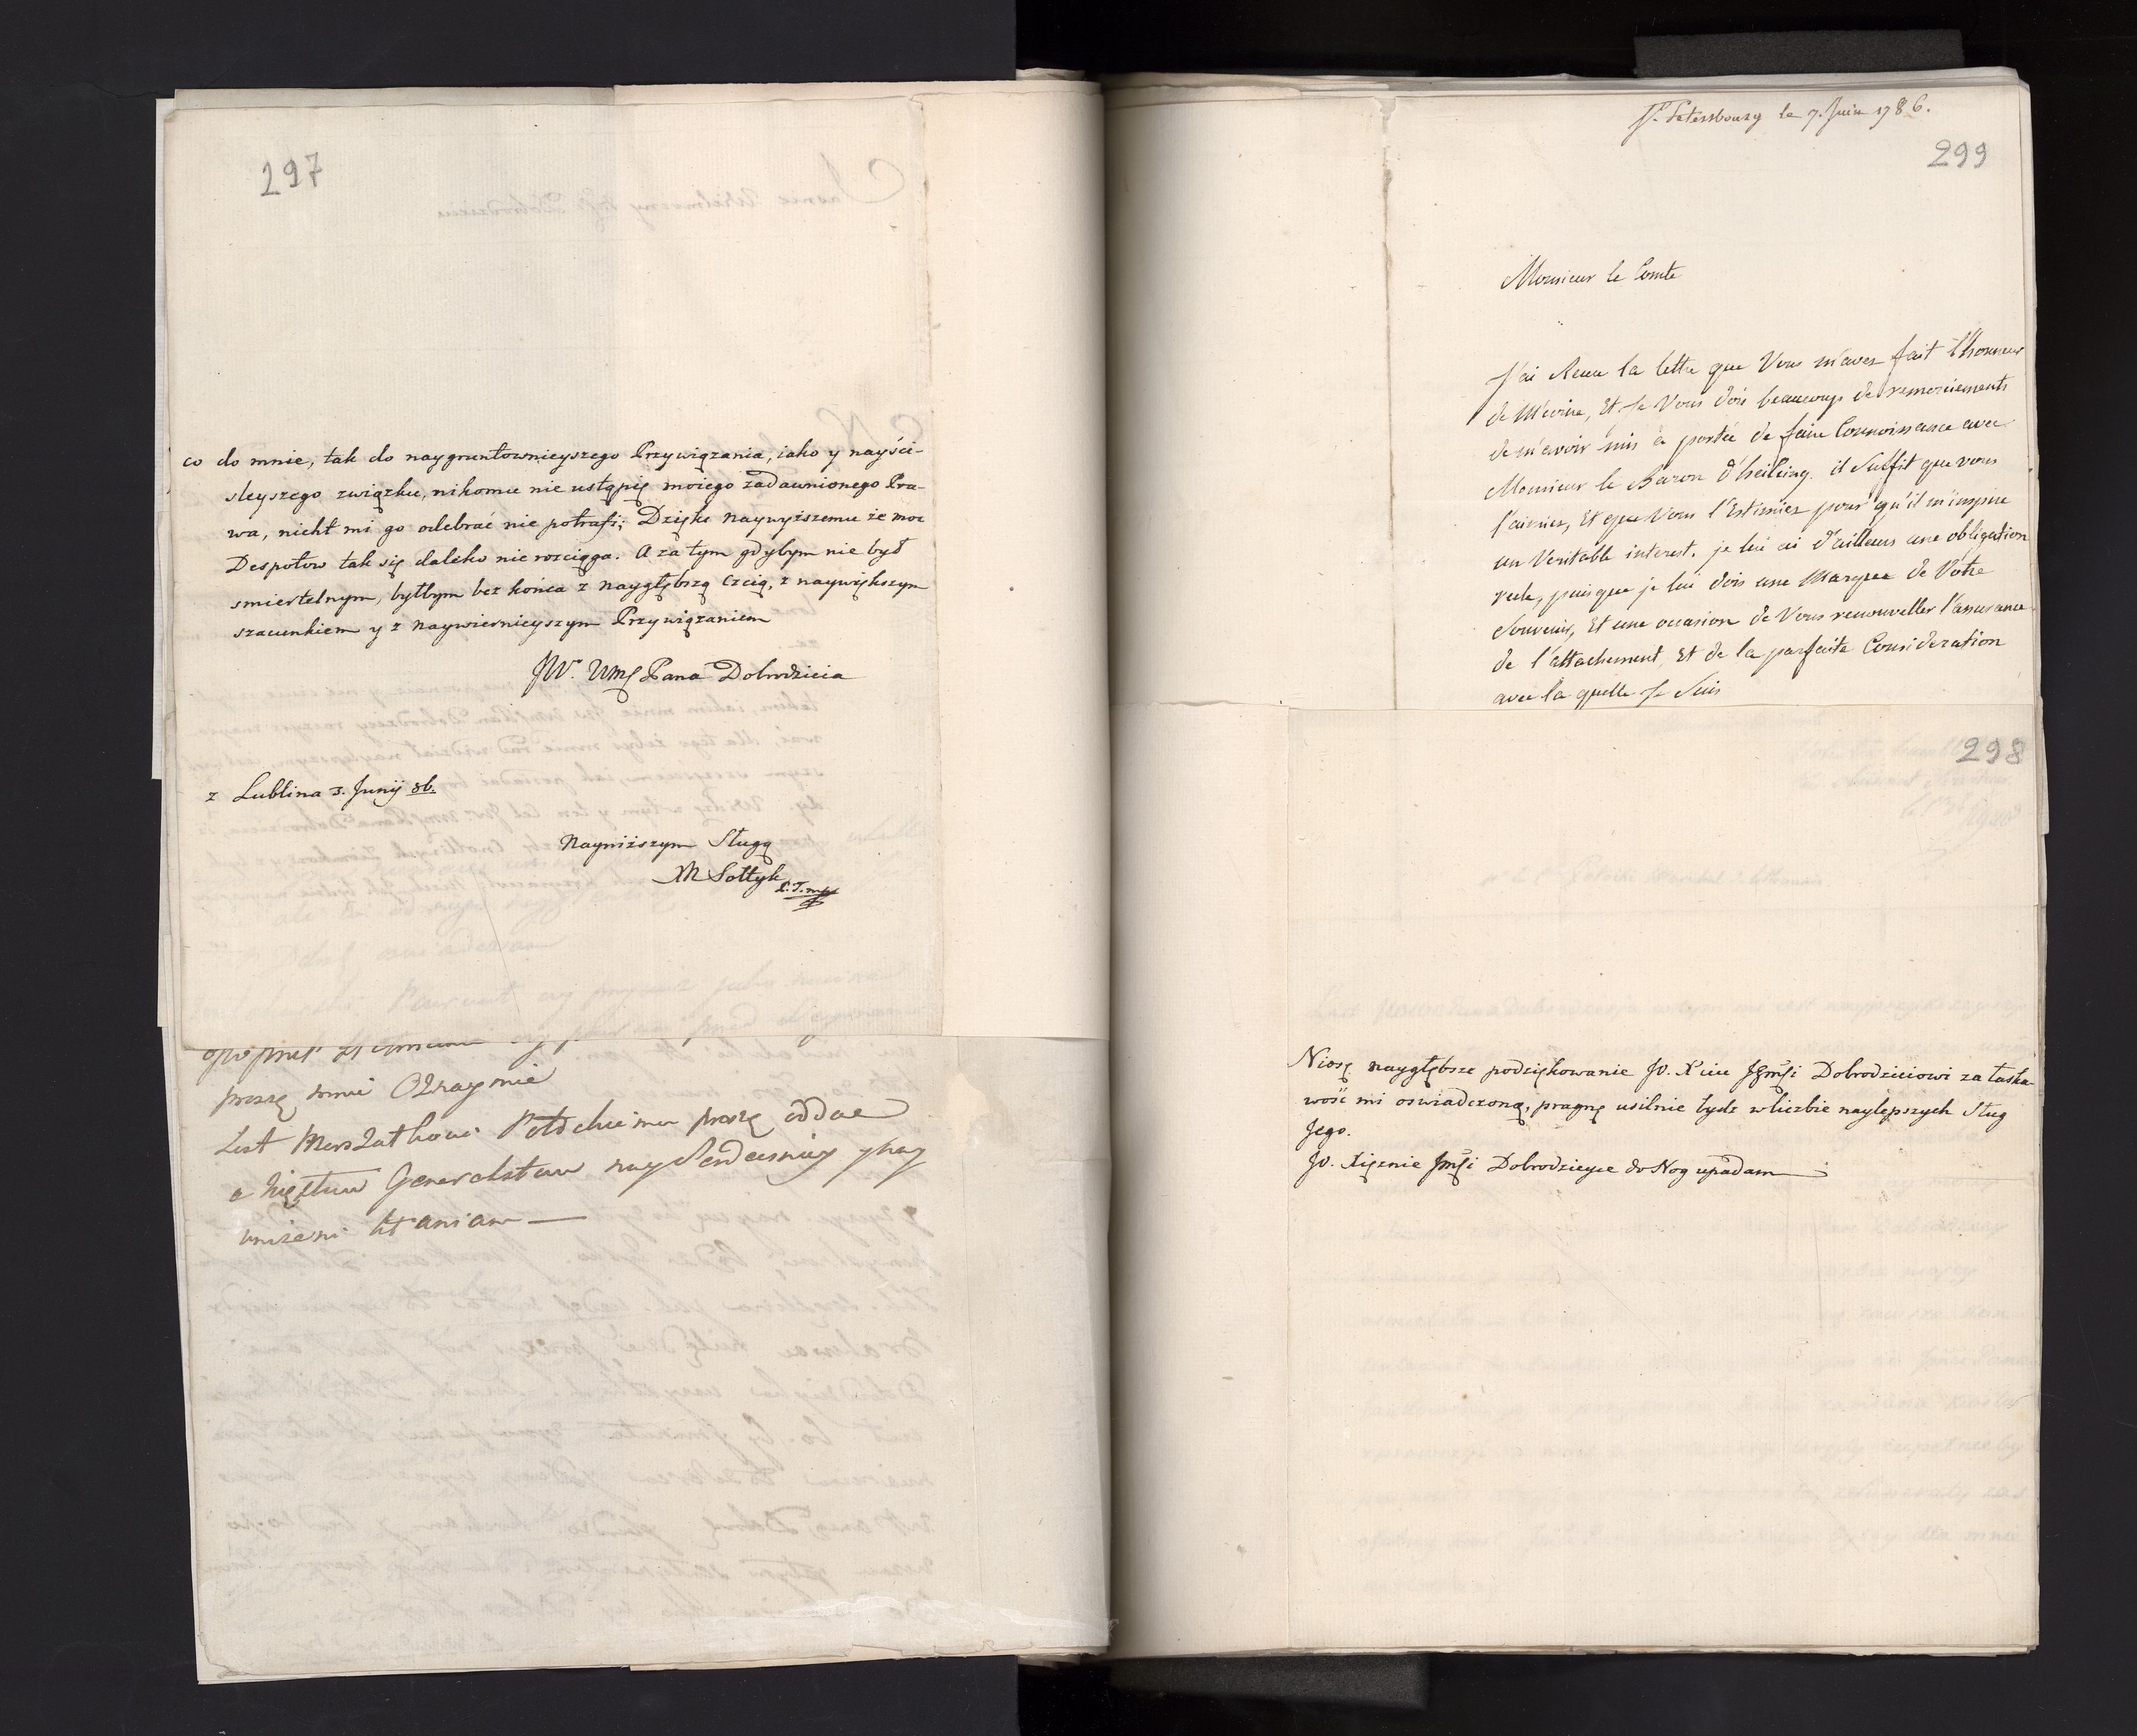 297
co do mnie, tak do naygruntownieyszego Przywiązania, iako y nayści-
sleyszego związku, nikomu nie ustąpię moiego zadawnionego Pra-
wa, nicht mi go odebrać nie potrafi; Dzięki naywyższemu że moc
Despotow tak się daleko nie rosciąga. A za tym gdybym nie był
smiertelnym, byłbym bez końca z naygłębszą czcią, z naywiększym
szacunkiem y z naywiernieyszym Przywiązaniem
JW. WmĘ Pana Dobrodzieia
z Lublina 3. Junij 86.
Nayniższym Sługą
M Sołtyk
proszę
List Marszałkowi proszę oddac
unizeni
St. Petersbourg le 7. Juin 1786.
299
Monsieur le Comte
J'ai Receu la lettre que Vous m'avez fait l'honneur
de M'ecrire, Et Je Vous dois beaucoup de remerciements
de m'avoir mis à portée de faire Connoissance avec
Monsieur le Baron d'heiking. il Suffit que vous
l'aimiez, Et que Vous l'Estimiez pour qu'il m'inspire
un Veritable interest. je lui ai d'ailleurs une obligation
reele, puisque je lui dois une Marque de Votre
Souvenir, Et une occasion de Vous renouveller l'assurance
de l'attachement, Et de la parfaite Consideration
avec la quelle Je Suis
298
Niosę naygłębsze podziękowanie JO. X'ciu Jgmści Dobrodzieiowi za łaska-
wość mi oswiadczoną, pragnę usilnie bydź w liczbie naylepszych Sług
Jego.
JO. Xiężnie Jmści Dobrodzieyce do Nog upadam